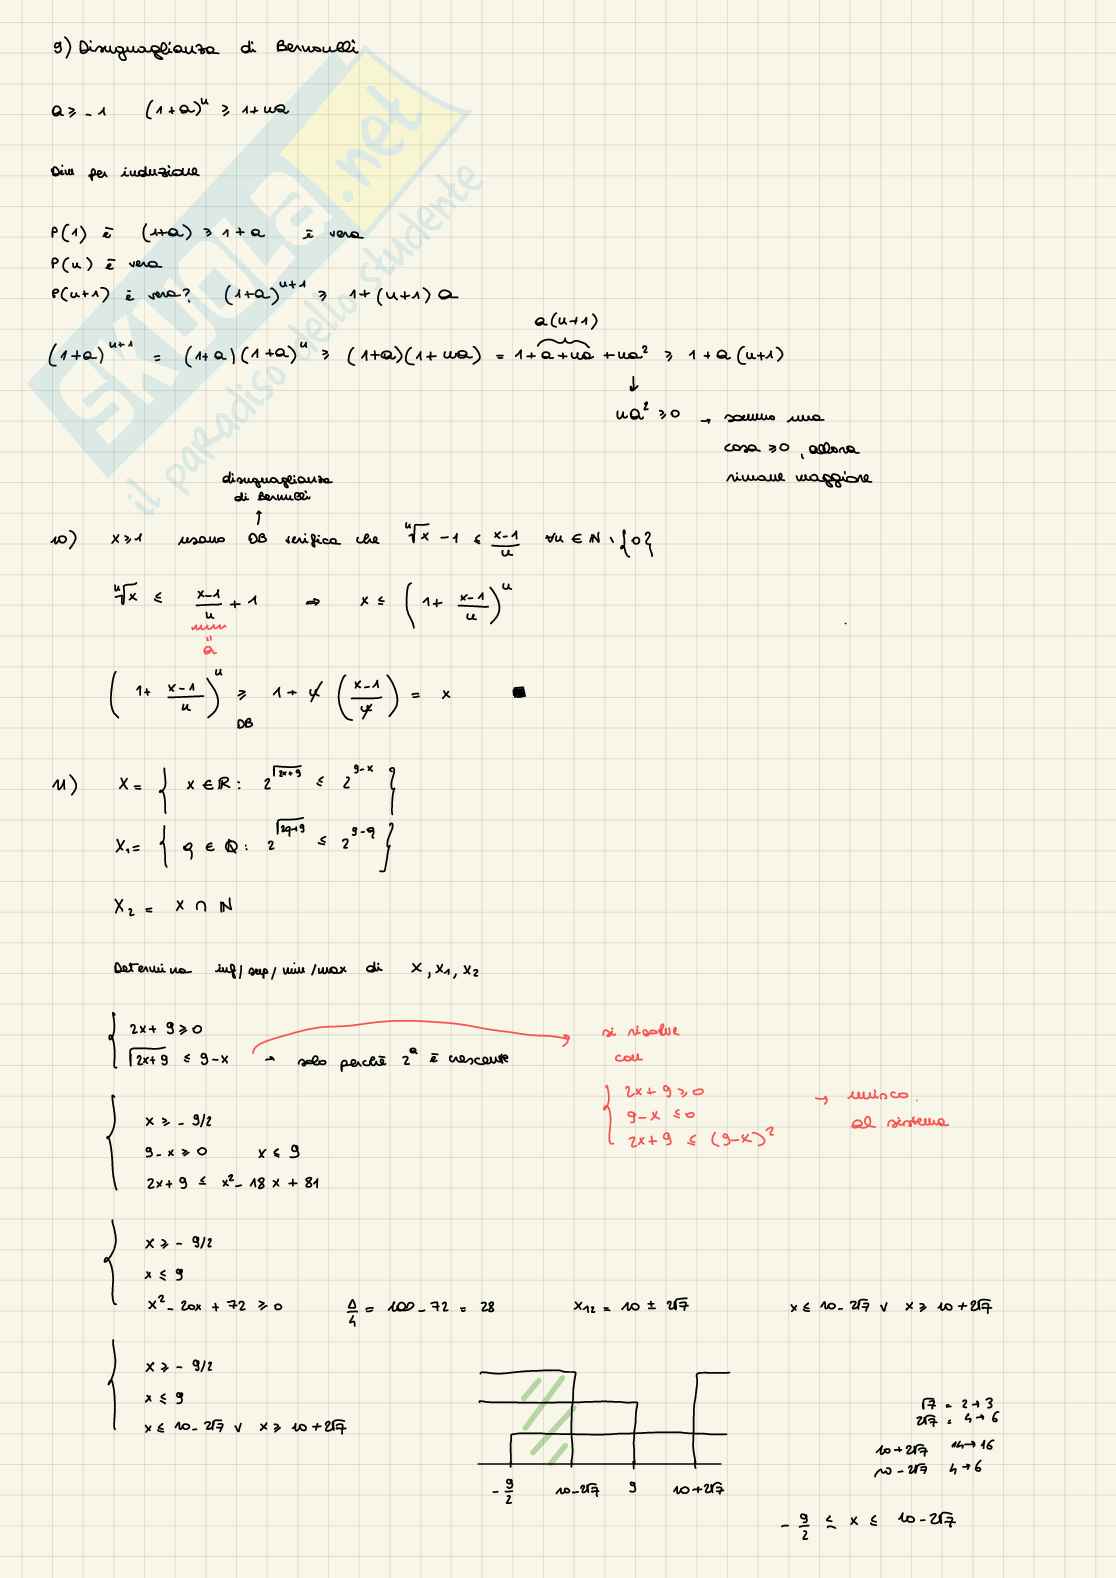 9) Disuguaglianza di Bernoulli
a ≥ -1 (1+a)ⁿ ≥ 1+na
Dim per induzione
P(1) è (1+a) ≥ 1+a è vera
P(n) è vera
P(n+1) è vera? (1+a)ⁿ⁺¹ ≥ 1+(n+1) a
a(n+1)
(1+a)ⁿ⁺¹ = (1+a)(1+a)ⁿ ≥ (1+a)(1+na) = 1+a+na+na² ≥ 1+a(n+1)
↓
na² ≥ 0 → sommo una
cosa ≥0, allora
rimane maggiore
disuguaglianza
di Bernulli
↑
10) x ≥ 1 usano DB verifica che ⁿ√x - 1 ≤ (x-1)/n ∀n ∈ ℕ \ {0}
ⁿ√x ≤ (x-1)/n + 1 ⇒ x ≤ (1 + (x-1)/n)ⁿ
"
a
(1 + (x-1)/n)ⁿ ≥ 1 + n ((x-1)/n) = x ■
DB
11) X = { x ∈ ℝ : 2^√(2x+9) ≤ 2^(9-x) }
X₁ = { q ∈ ℚ : 2^√(2q+9) ≤ 2^(9-q) }
X₂ = X ∩ ℕ
Determina inf/sup/min/max di X, X₁, X₂
{ 2x+9 ≥ 0
√(2x+9) ≤ 9-x → solo perchè 2ᵃ è crescente
si risolve
con
{ 2x+9 ≥ 0
9-x ≤ 0
2x+9 ≤ (9-x)²
→ unisco
al sistema
{ x ≥ -9/2
9-x ≥ 0 x ≤ 9
2x+9 ≤ x² - 18x + 81
{ x ≥ -9/2
x ≤ 9
x² - 20x + 72 ≥ 0 Δ/4 = 100 - 72 = 28 x₁₂ = 10 ± 2√7 x ≤ 10-2√7 ∨ x ≥ 10+2√7
{ x ≥ -9/2
x ≤ 9
x ≤ 10-2√7 ∨ x ≥ 10+2√7
-9/2 10-2√7 9 10+2√7
√7 = 2→3
2√7 = 4→6
10+2√7 14→16
10-2√7 4→6
-9/2 ≤ x ≤ 10-2√7
SKUOLA.net
il paradiso dello studente